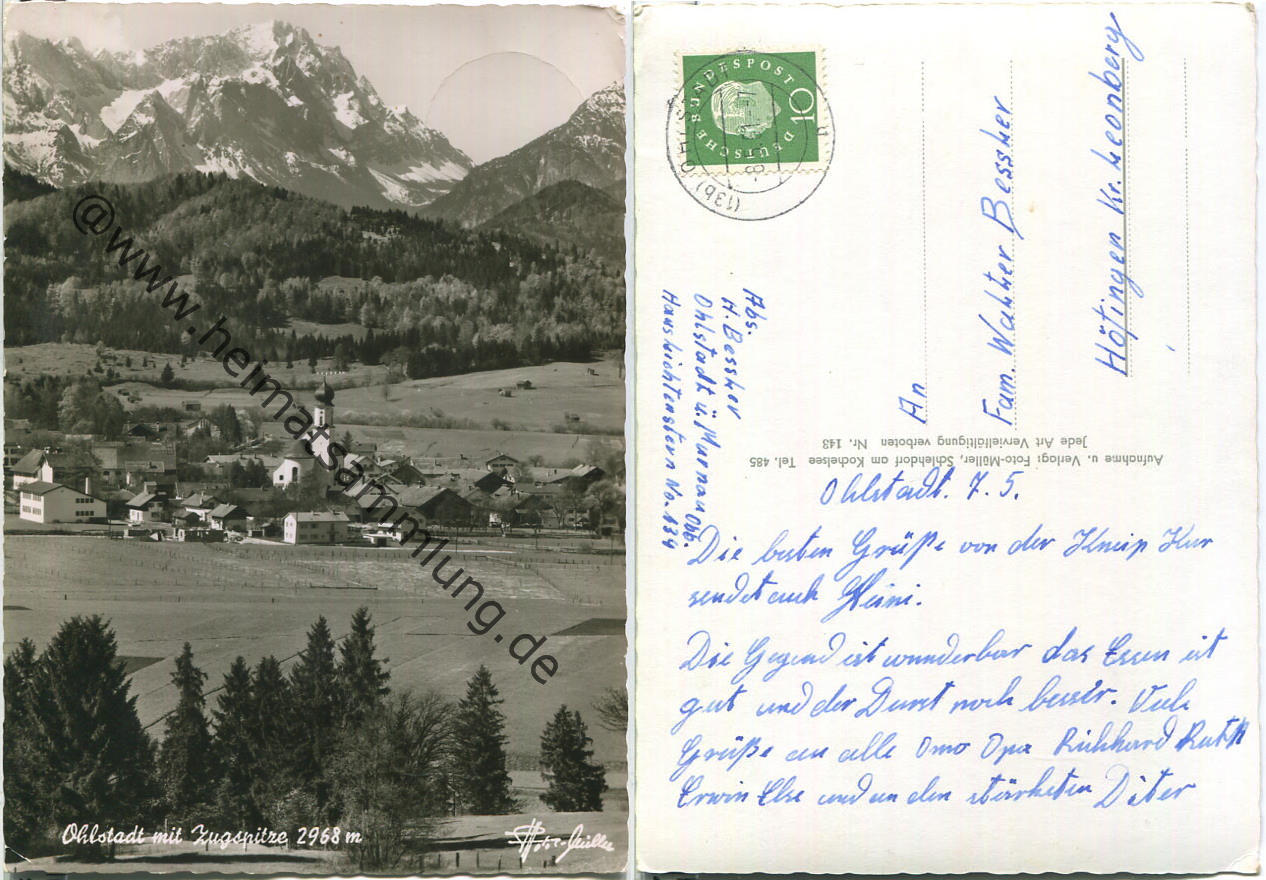 @www.heimatsammlung.de
Ohlstadt mit Zugspitze 2968 m
Foto-Müller
DEUTSCHE BUNDESPOST
10
(13b) OHLSTADT
An
Fam. Walter Bessler
Höfingen Kr. Leonberg
Abs.
H. Bessler
Ohlstadt ü. Murnau Obb.
Haus Lichtenstern No. 134
Aufnahme u. Verlag: Foto-Müller, Schlehdorf am Kochelsee Tel. 485
Jede Art Vervielfältigung verboten Nr. 143
Ohlstadt. 7. 5.
Die besten Grüße von der Kneip Kur
sendet euch Heini.
Die Gegend ist wunderbar das Essen ist
gut und der Durst noch besser. Viele
Grüße an alle Omo Opa Richhard Ruth
Erwin Else und an den stärksten Diter